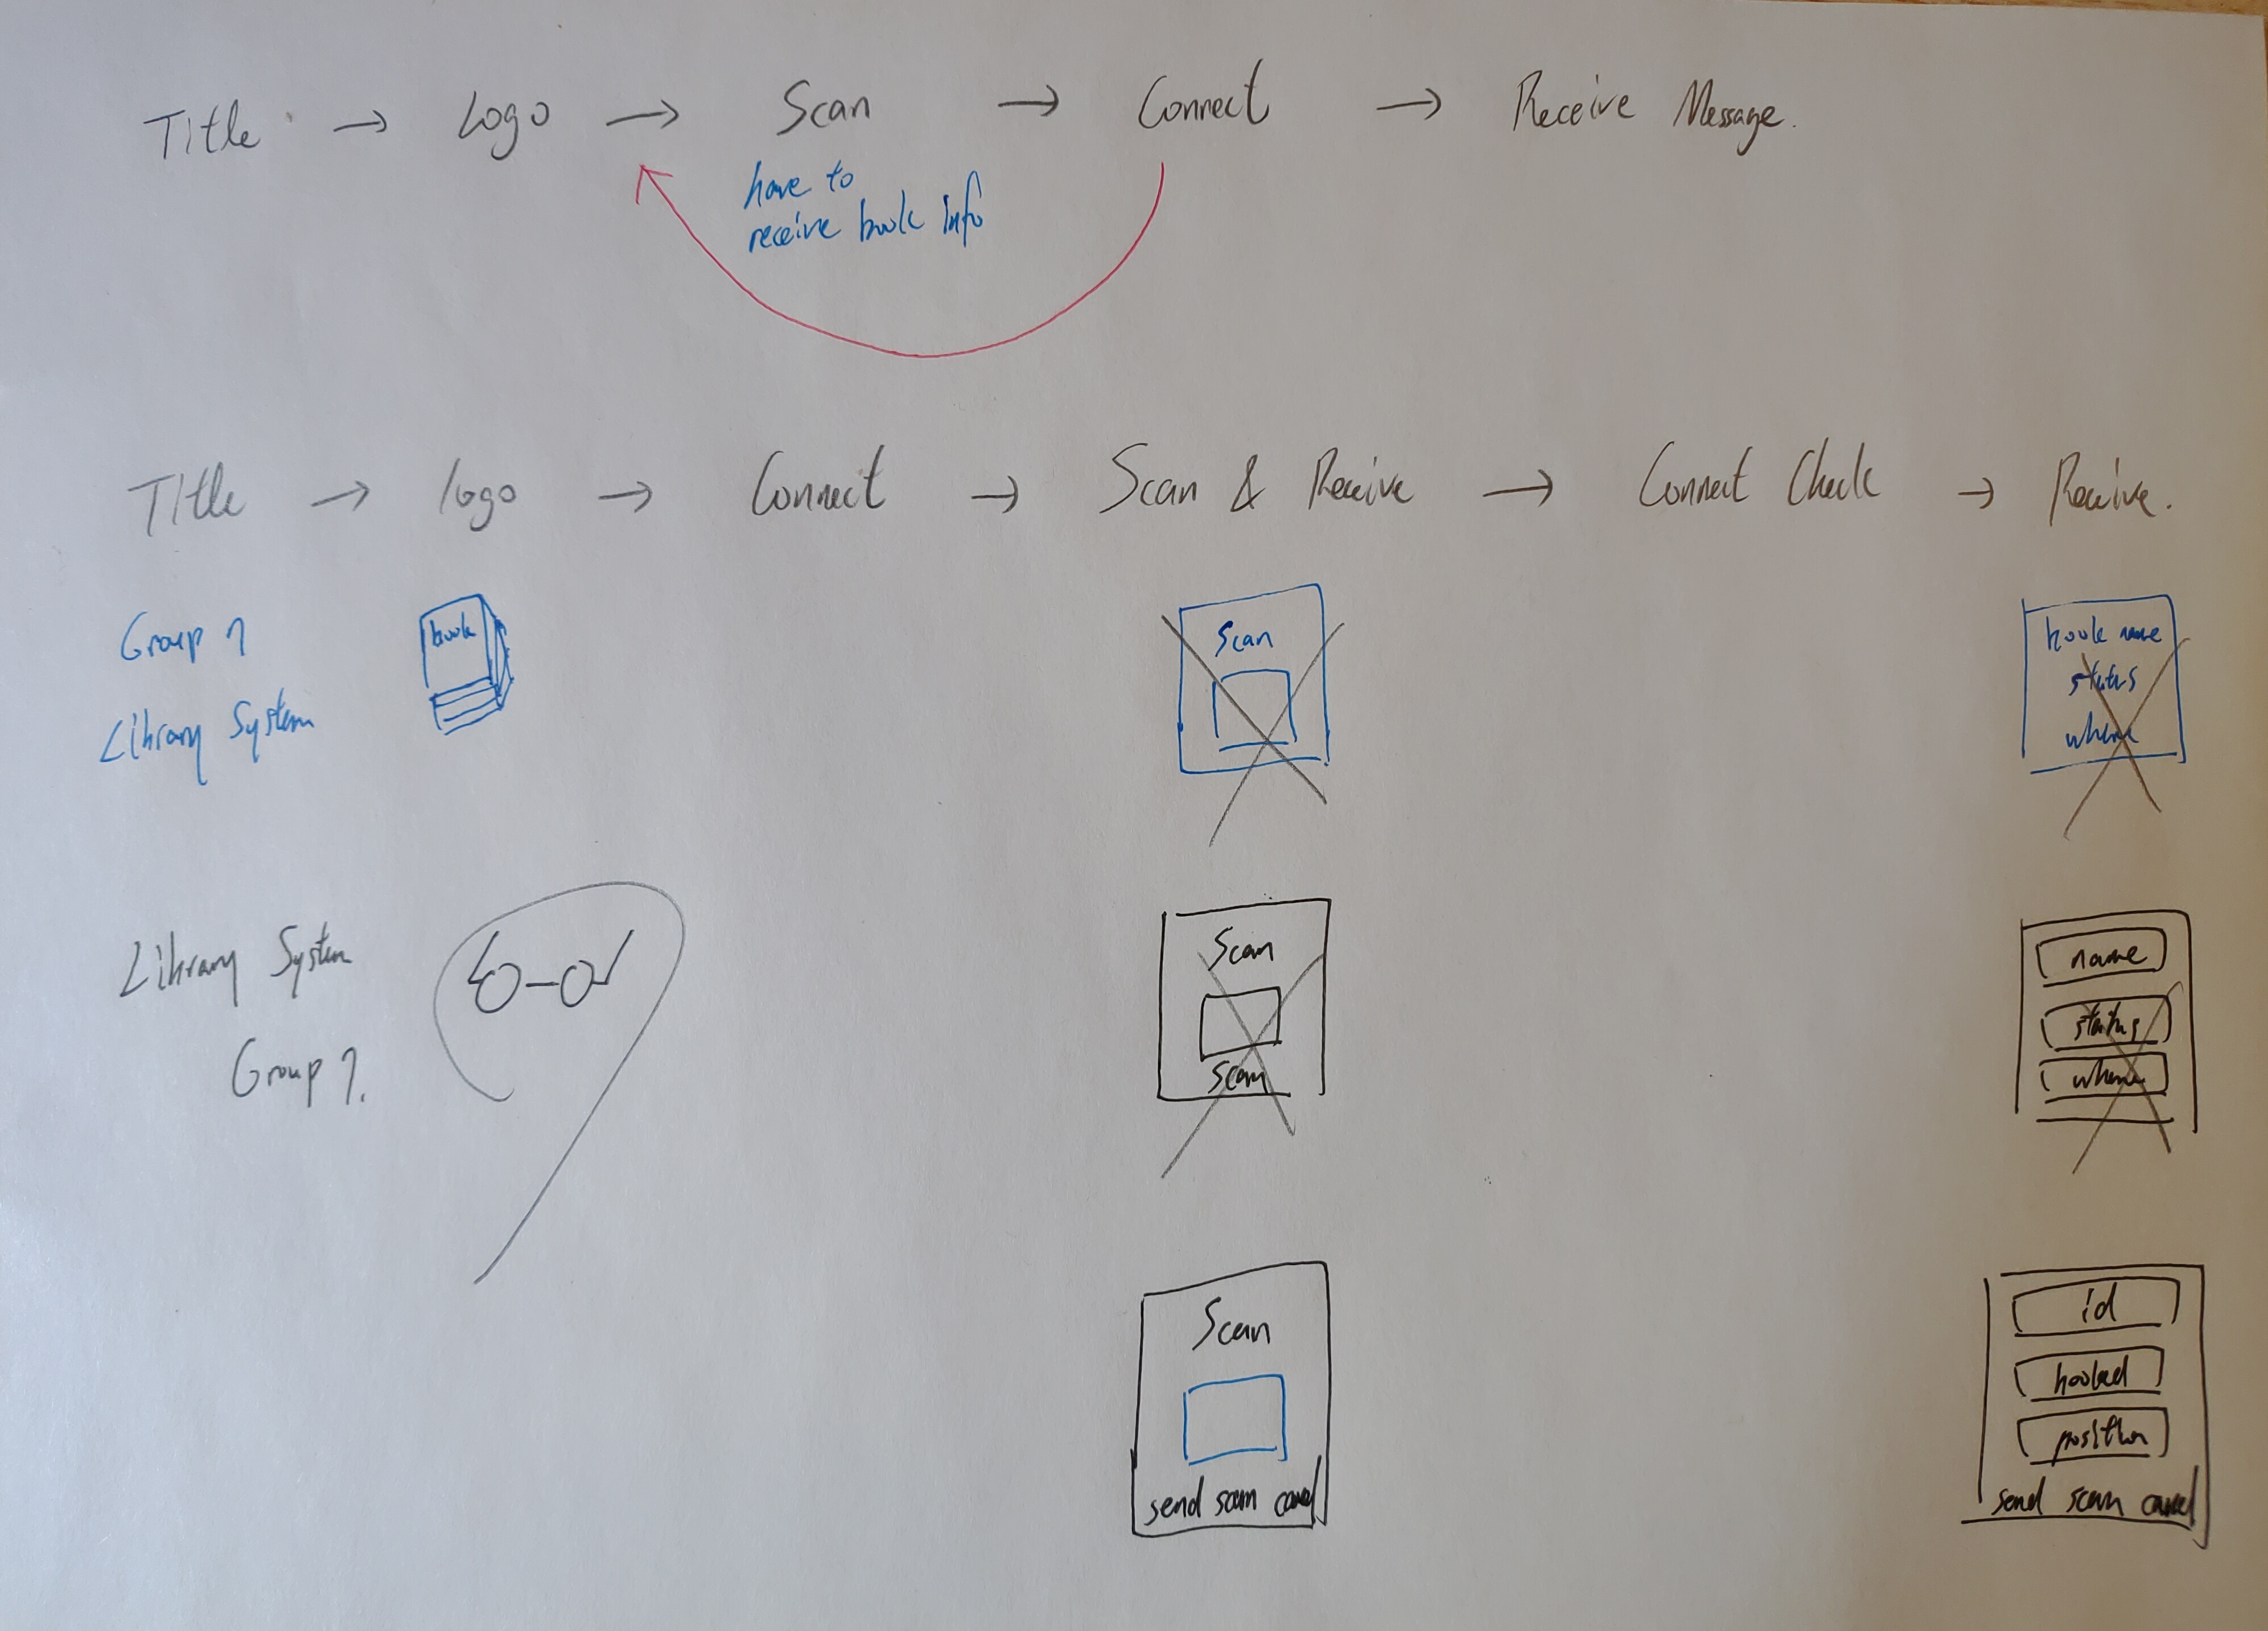 Title → Logo → Scan → Connect → Receive Message.
have to
receive book info
Title → logo → Connect → Scan & Receive → Connect Check → Receive.
Group 7
Library System
book
Scan
book name
status
where
Library System
Group 7.
Scan
Scan
name
status
where
Scan
send scan cancel
id
booked
position
send scan cancel